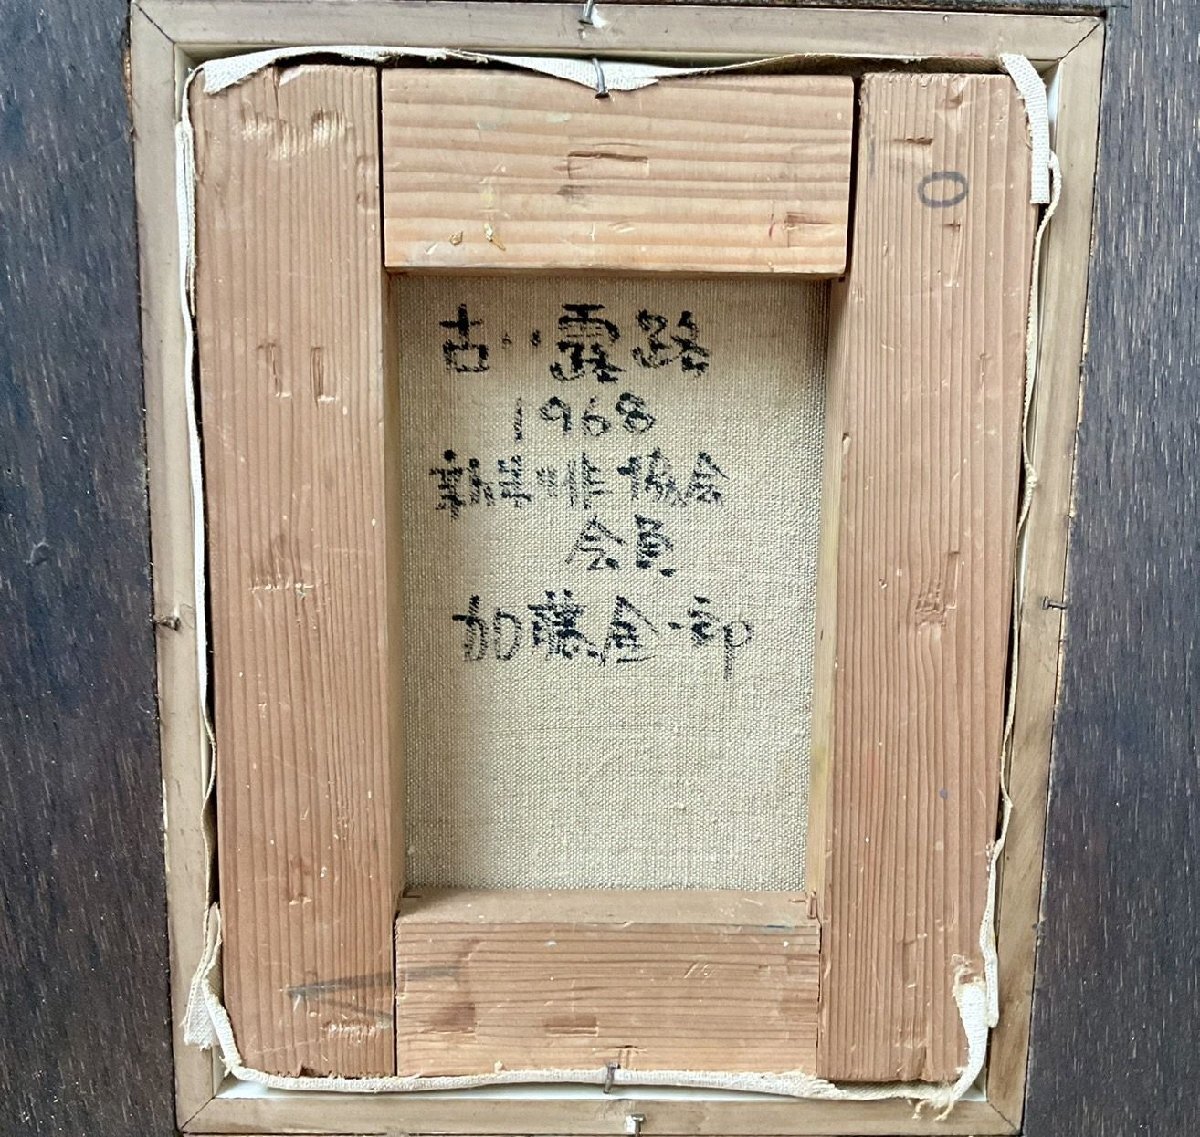 古い露路
1968
新制作協会
会員
加藤金一郎